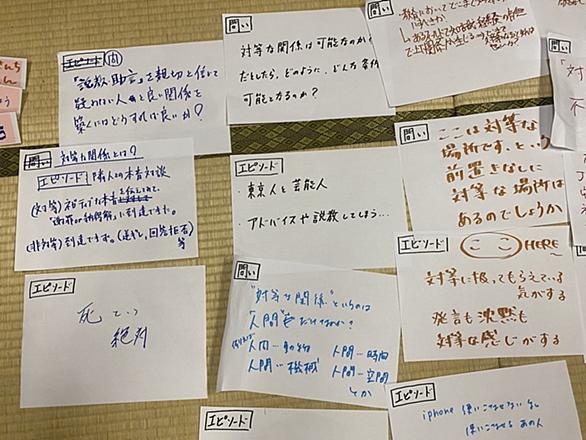 エピソード 問
「説教・助言」を親切と信じて
疑わない人と良い関係を
築くにはどうすれば良いか?
問い
対等な関係は可能なのか?
だとしたら、どのように、どんな条件
可能となるのか?
問い
問い
ここは対等な
場所です、という
前置きなしに
対等な場所は
あるのでしょうか
問い 対等な関係とは?
エピソード 隣人との本音対談
(対等) ネガティブな本音を伝えて、
(非対等) 到達できず。(逆ギレ、回答拒否)
等
エピソード
・東京人と芸能人
・アドバイスや説教してしまう…
エピソード
ここ HERE
対等に扱ってもらえている
気がする
発言も沈黙も
対等な感じがする
エピソード
死という
絶対
問い
"対等な関係"というのは
"人間"だけなのか?
例えば
人間-動物 人間-時間
人間-機械 人間-空間
とか
エピソード
iphone 使いこなせない私
使いこなせるあの人
エピソード